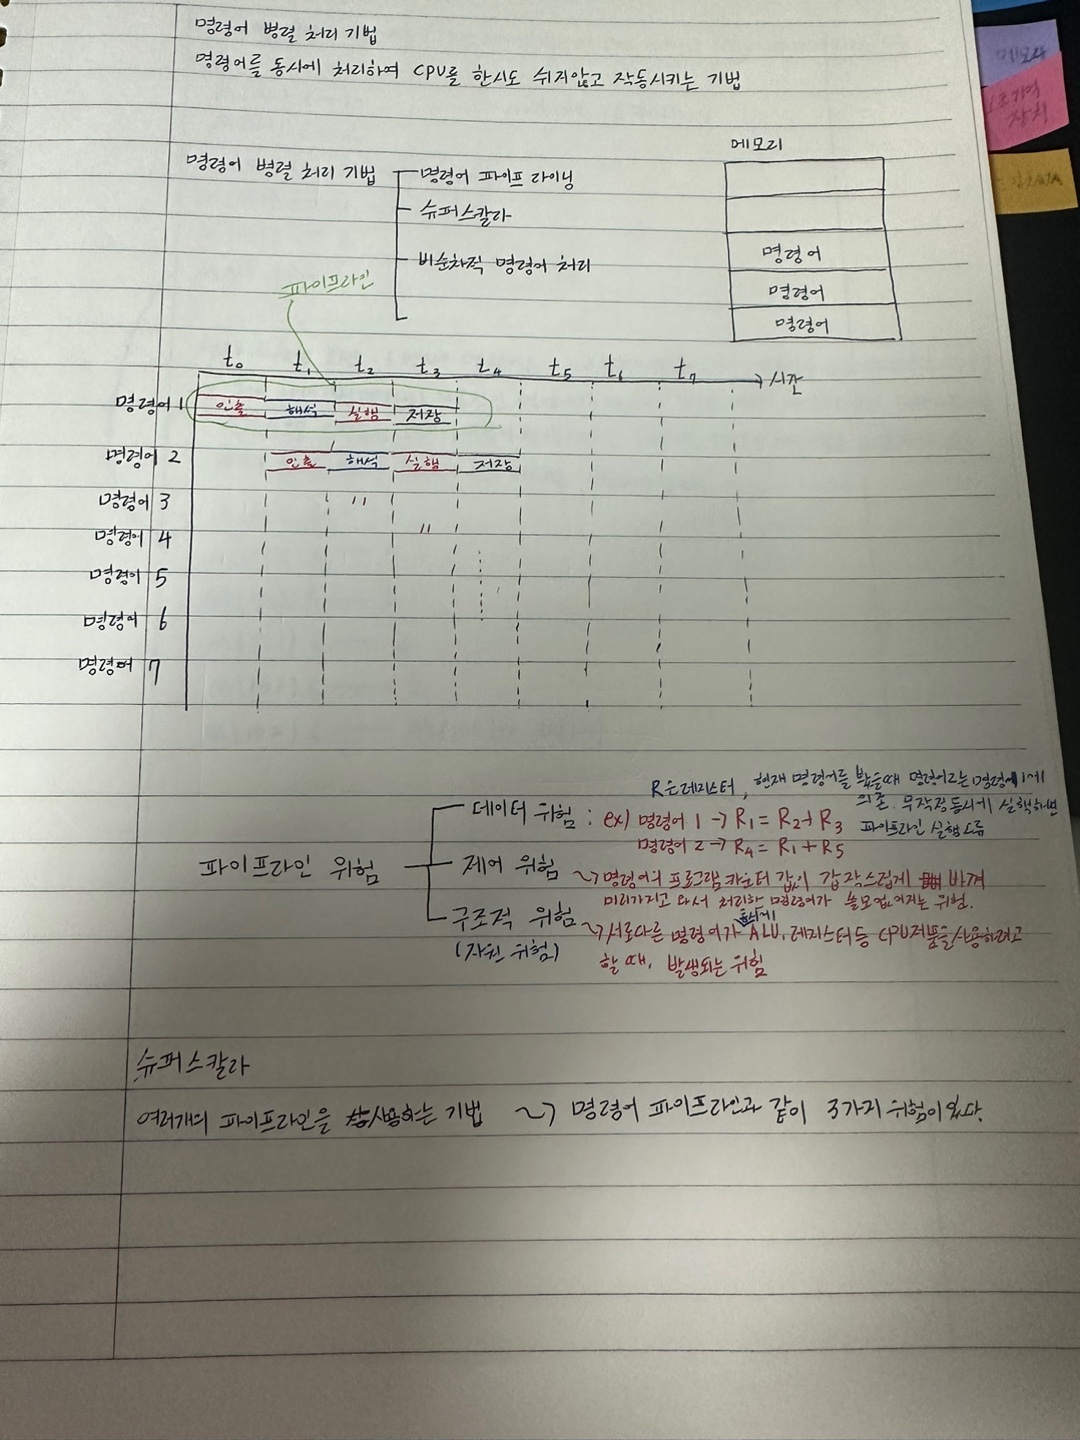 명령어 병렬 처리 기법
명령어를 동시에 처리하여 CPU를 한시도 쉬지않고 작동시키는 기법
메모리
명령어 병렬 처리 기법
명령어 파이프 라이닝
슈퍼스칼라
비순차적 명령어 처리
명령어
명령어
명령어
파이프라인
t₀ t₁ t₂ t₃ t₄ t₅ t₆ t₇ 시간
명령어 1 인출 해석 실행 저장
명령어 2 인출 해석 실행 저장
명령어 3 〃
명령어 4 〃
명령어 5
명령어 6
명령어 7
파이프라인 위험
R은 레지스터, 현재 명령어를 봤을때 명령어2는 명령어1에
의존. 무작정 동시에 실행하면
파이프라인 실행 오류
데이터 위험 : ex) 명령어 1 → R₁ = R₂ + R₃
명령어 2 → R₄ = R₁ + R₅
제어 위험 ~> 명령어의 프로그램 카운터 값이 갑작스럽게 바껴
미리가지고 와서 처리한 명령어가 쓸모 없어지는 위험.
구조적 위험 ~> 서로다른 명령어가 동시에 ALU, 레지스터 등 CPU부품을 사용하려고
(자원 위험) 할 때, 발생되는 위험
슈퍼스칼라
여러개의 파이프라인을 사용하는 기법 ~> 명령어 파이프라인과 같이 3가지 위험이 있다.
메모리
장치